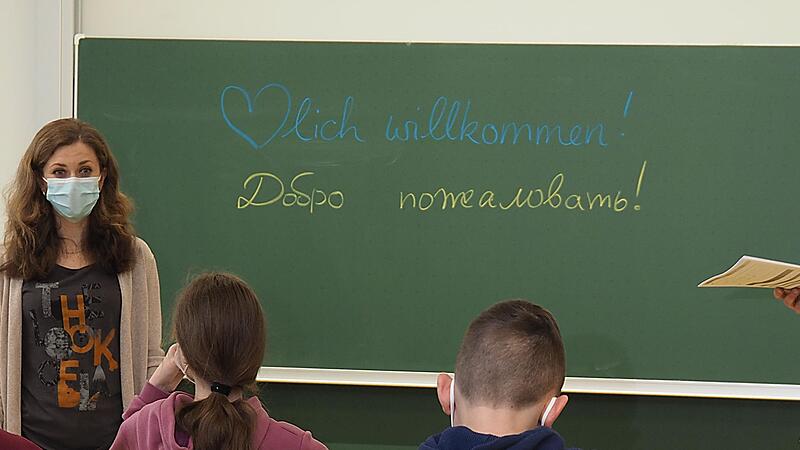 ♡lich willkommen!
Добро пожаловать!